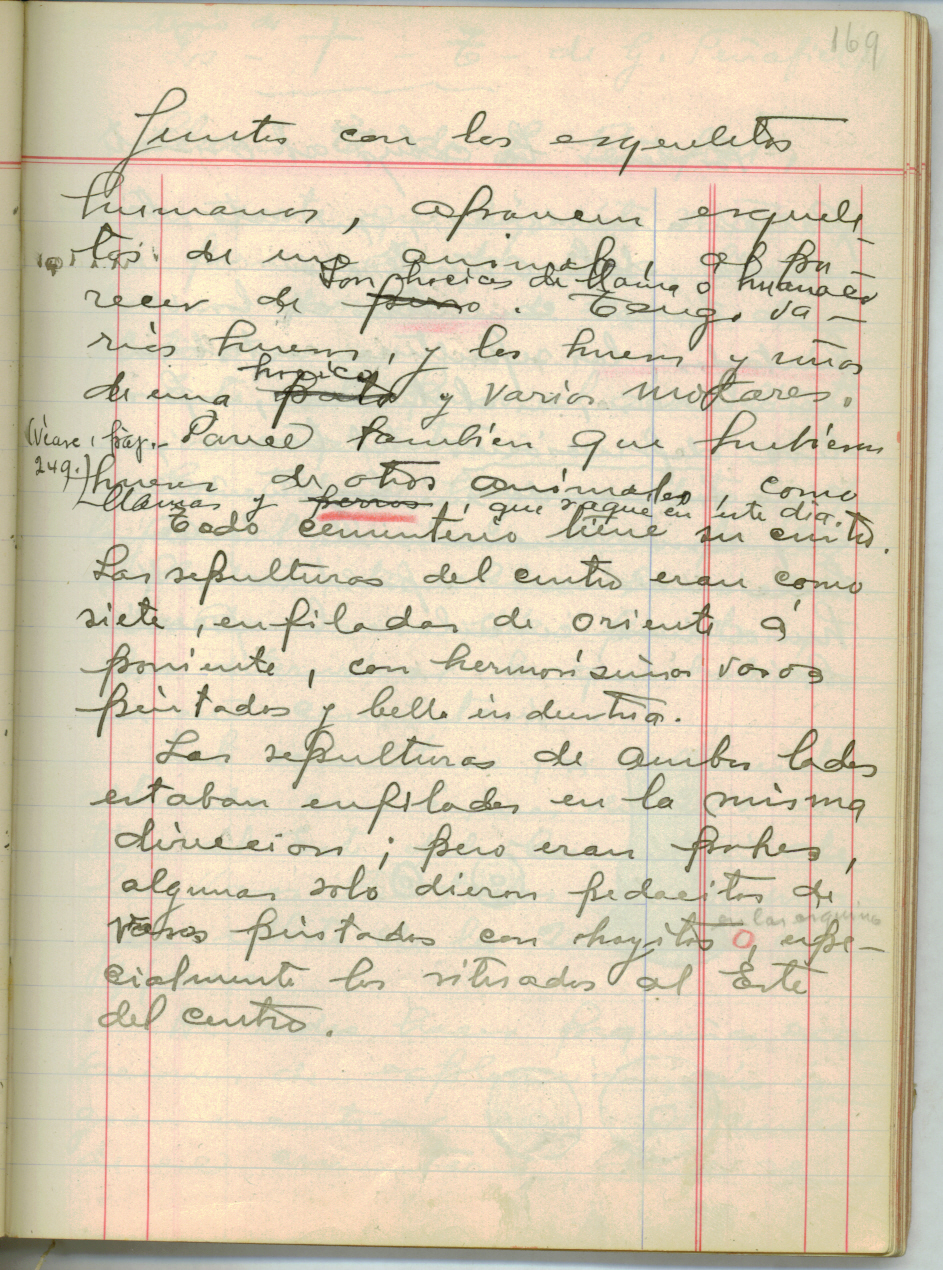 169
Juntos con los esqueletos
humanos, aparecen esquele-
tos de un animal, al pa-
Son hocicos de llama o huanaco
recer de perro. Tengo va-
rios huesos, y los huesos y uñas
hocico
de una pata y varios molares.
(Véase, pág. 249.)
Parece también que hubieran
huesos de otros animales, como
llamas y perros, que saqué en este día.
Todo cementerio tiene su centro.
Las sepulturas del centro eran como
siete, enfiladas de oriente á
poniente, con hermosísimos vasos
pintados y bella industria.
Las sepulturas de ambos lados
estaban enfilados en la misma
direccion; pero eran pobres,
algunas solo dieron pedacitos de
en las esquinas
vasos pintados con hoyitos O, espe-
cialmente los situados al Este
del centro.